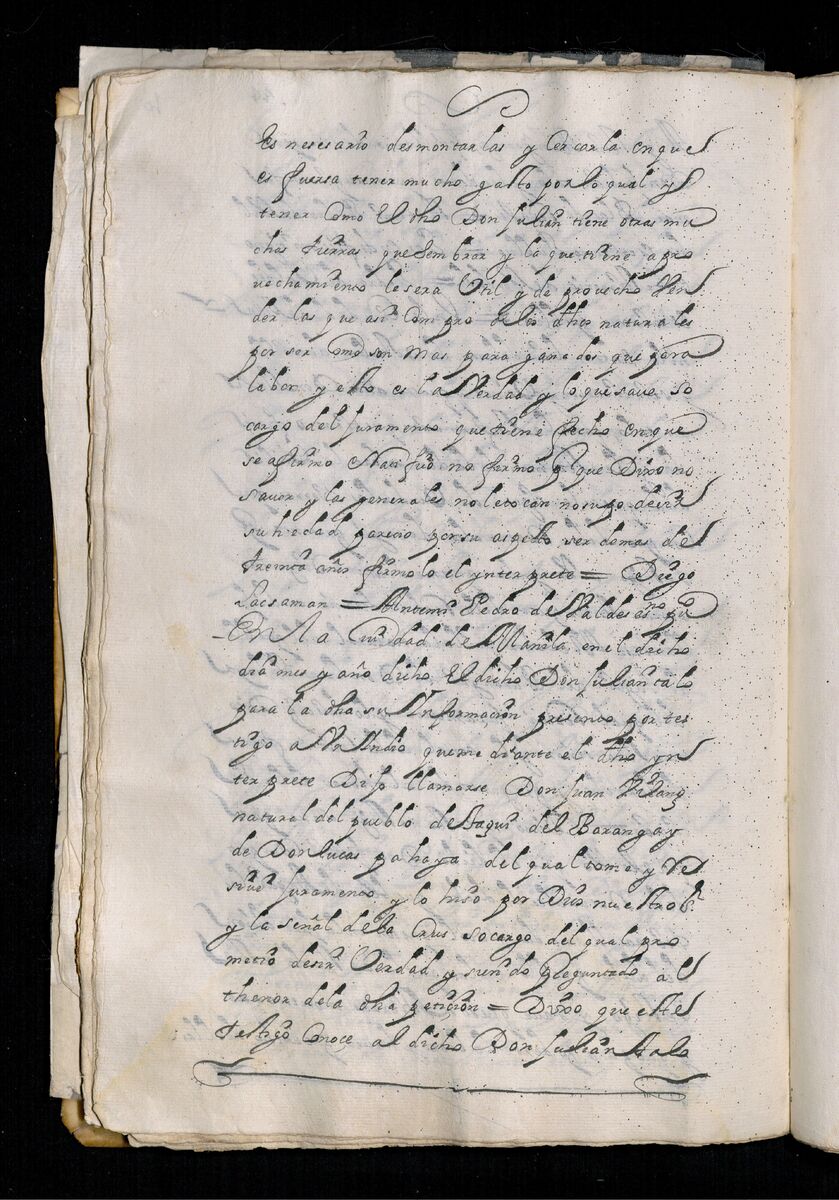 Es nesesario desmontarlas y cercarla en que
es fuersa tener mucho gasto por lo qual y
tener como El dho Don Julian tiene otras mu
chas tierras que sembrar y la que tiene apro
vechamiento le sera Util y de provecho Ven
der las que asi compro de los dhos naturales
por ser como son mas para ganados que para
labor y esto es la Verdad y lo que save so
cargo del juramento que tiene fecho en que
se afirmo Ratifico no firmo q que Dixo no
saver y las generales no le tocan no supo desir
su hedad parecio por su aspecto ser de mas de
treinta años firmolo el ynterprete = Diego
Lacsaman = Antemi Pedro de Valdes esno pu
En la Ciudad de Manila en el dicho
dia mes y año dicho El dicho Don Julian talo
para la dha su Informacion presento por tes
tigo a Un Indio que mediante el dho yn
terprete Dijo llamarse Don Juan
natural del pueblo de tagui del Barangay
de Don lucas pahaya del qual tome y Re
sivi juramento y lo hiso por Dios nuestro sr
y la señal de la Crus so cargo del qual pro
metio desir Verdad y siendo Preguntado al
thenor de la dha peticion = Dixo que este
testigo Conoce al dicho Don Julian talo